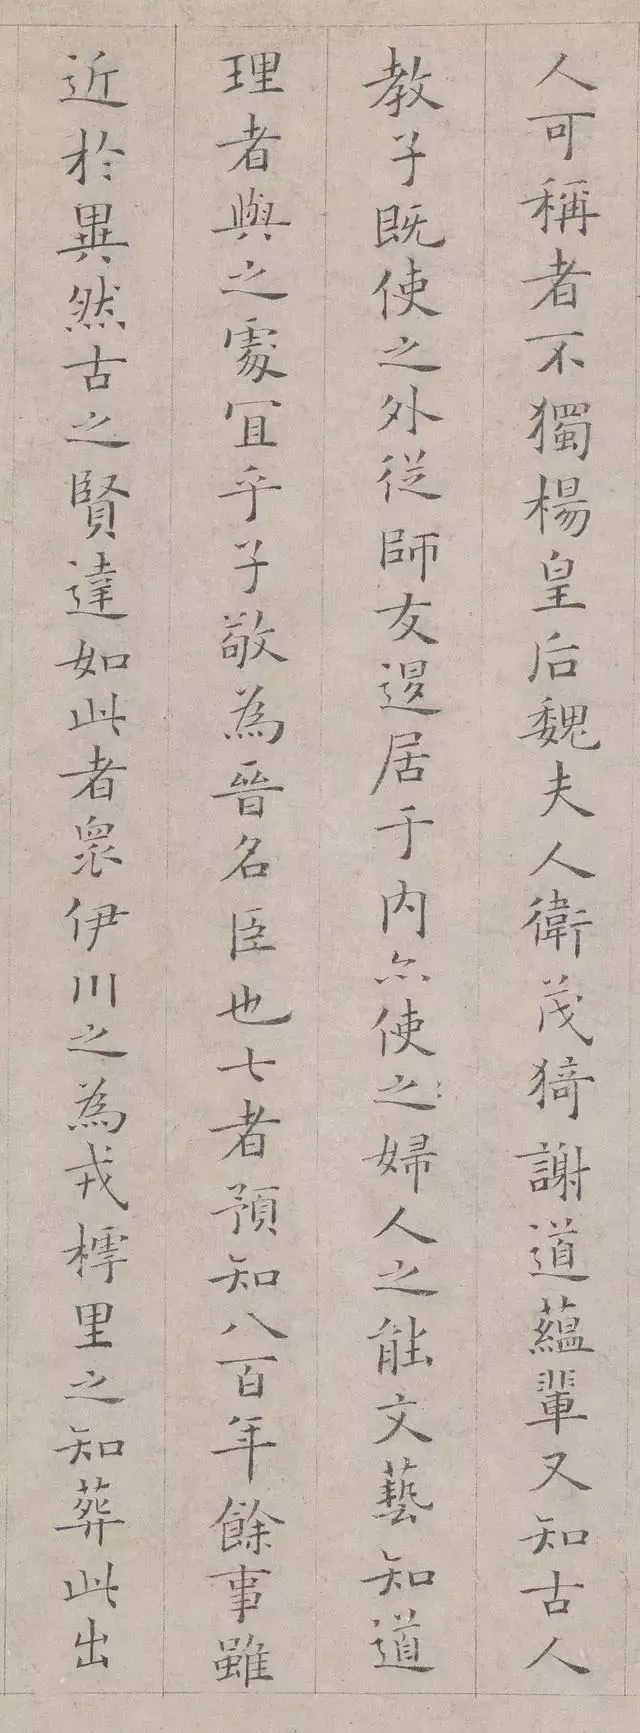 人可稱者不獨楊皇后魏夫人衛茂猗謝道蘊輩又知古人
教子既使之外從師友退居于内亦使之婦人之能文藝知道
理者與之處冝乎子敬為晉名臣也七者預知八百年餘事雖
近於異然古之賢達如此者衆伊川之為戎樗里之知葬此出